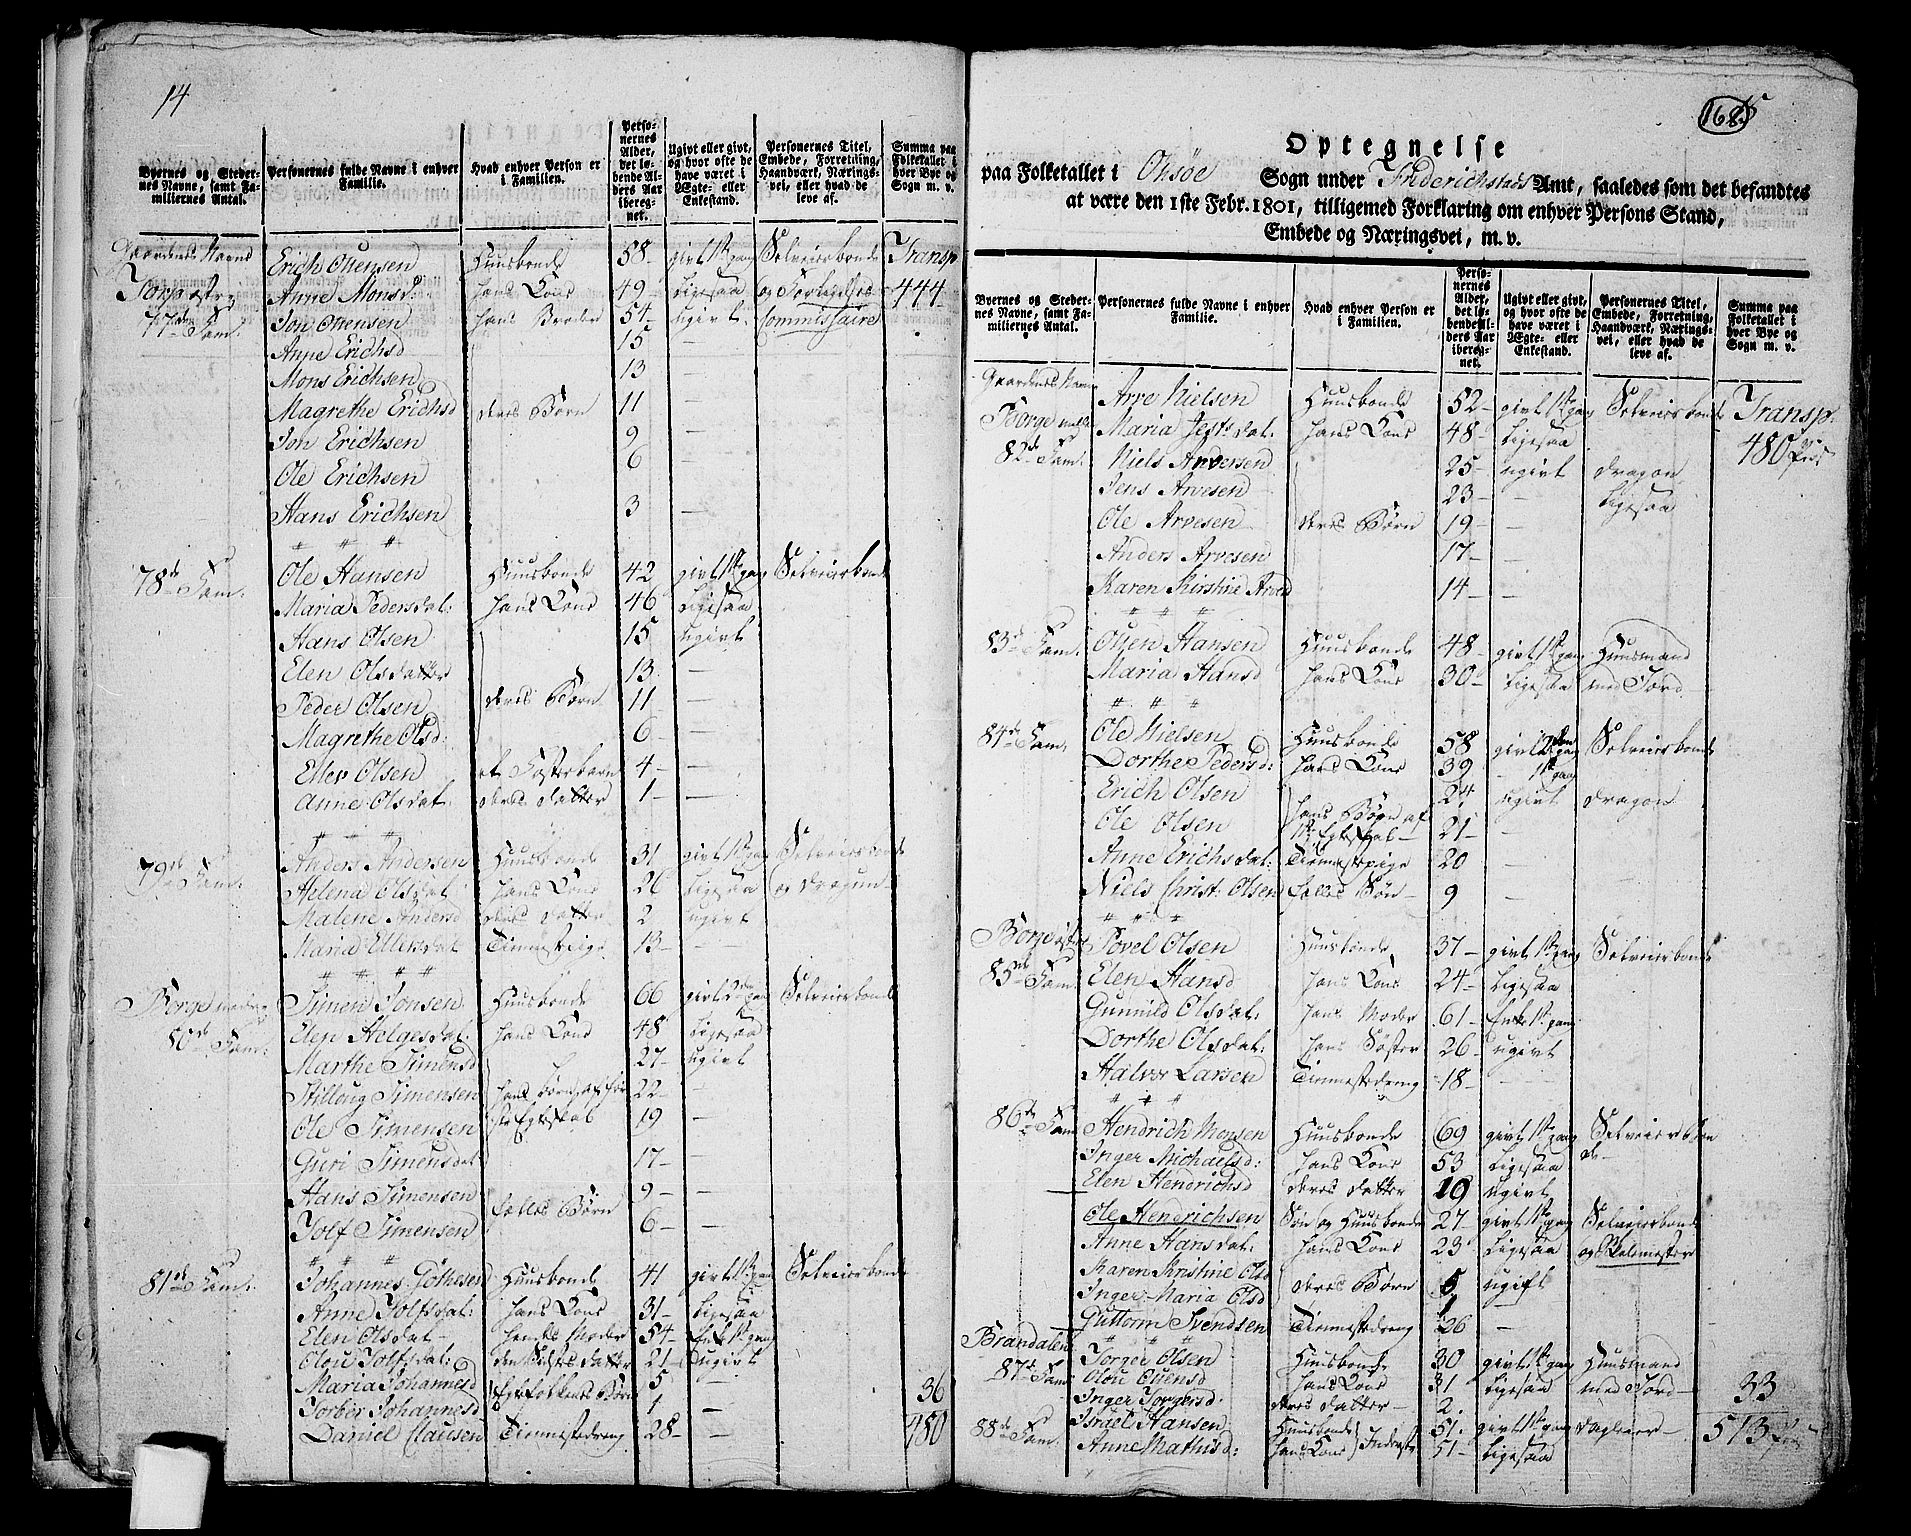 14
Byernes og Steder-
nes Navne, samt Fa-
miliernes Antal.
Personernes fulde Navne i enhver
Familie.
Hvad enhver Person er
i Familien.
Perso-
nernes
Alder,
det lø-
bende Al-
ders Aar
ibereg-
net.
Ugivt eller givt,
og hvor ofte de
have været i
Ægte- eller
Enkestand.
Personernes Titel,
Embede, Forretning,
Haandværk, Nærings-
vei, eller hvad de
leve af.
Summa paa
Folketallet i
hver Bye og
Sogn m. v.
Gaardenes Navne Erich Ottensen Huusbonde 58- givt 1ste gang Selveierbonde Transp
Torp østre Anne Monsd: hans Kone 49- Ligesaa og Forligelses- 444
77de Fam: Jon Ottensen hans Broder 54 ugivt Commissaire
Anne Erichsd 15 —
Mons Erichsen 13 —
Magrethe Erichsd deres Børn 11 —
Jon Erichsen 9 —
Ole Erichsen 6 —
Hans Erichsen 3 —
78de Fam: Ole Hansen Huusbonde 42 givt 1ste gang Selveierbonde
Maria Pedersdat: hans Kone 46 Ligesaa
Hans Olsen 15 ugivt
Elen Olsdatter 13 —
Peder Olsen deres Børn 11 —
Magrethe Olsd: 6 —
Eller Olsen et Fosterbarn 4 —
Anne Olsdat: deres datter 1 —
79de Fam: Anders Andersen Huusbonde 31 givt 1ste gang Selveierbonde
Helena Olsdat: hans Kone 26 Ligesaa og dragun
Malene Andersd deres datter 2 ugivt
Maria Ellersdat Tienestepige 13 —
Borge nedre Simen Jonsen Huusbonde 66 givt 2den gang Selveierbonde
80de Fam: Elen Helgesdat: hans Kone 48 Ligesaa
Marthe Simensd 27 ugivt
Stilloug Simensen hans Børn af før- 22 —
Ole Simensen ste Egteskab 19 —
Guri Simensdat: 17 —
Hans Simensen 9 —
Jolf Simensen fælles Børn 6 —
81de Fam: Johannes Gøthesen Huusbonde 41 givt 1ste gang Selveierbonde
Anne Jolfsdat: hans Kone 31 Ligesaa
Elen Olsdat hendes Moder 54 Enke 1ste gang
Olou Jolfsdat: den Sidstes datter 21 ugivt
Maria Johannesd Egtefolkenes Børn 5 —
Torber Johannesd 1 — 36
Daniel Clausen Tienestedreng 28 — 480
168
Optegnelse
paa Folketallet i Ohsøe Sogn under Friderichstads Amt, saaledes som det befandtes
at være den 1ste Febr. 1801, tilligemed Forklaring om enhver Persons Stand,
Embede og Næringsvei, m. v.
Byernes og Steder-
nes Navne, samt Fa-
miliernes Antal.
Personernes fulde Navne i enhver
Familie.
Hvad enhver Person er
i Familien.
Perso-
nernes
Alder,
det lø-
bende Al-
ders Aar
ibereg-
net.
Ugivt eller givt,
og hvor ofte de
have været i
Ægte- eller
Enkestand.
Personernes Titel,
Embede, Forretning,
Haandværk, Nærings-
vei, eller hvad de
leve af.
Summa paa
Folketallet i
hver Bye og
Sogn m. v.
Gaardenes Navne Arve Nielsen Huusbonde 52 givt 1ste gang Selveierbonde Transp:
Borge Maria hans Kone 48 Ligesaa 480
82de Fam: Niels Arvesen 25 ugivt dragon
Jens Arvesen 23 — Ligesaa
Ole Arvesen deres Børn 19 —
Anders Arvesen 17 —
Karen Kirstine Arvesd 14 —
83de Fam: Otten Hansen Huusbonde 48 givt 1ste gang Huusmand
Maria Hansd hans Kone 30 Ligesaa med Jord
84de Fam: Ole Nielsen Huusbonde 58 givt 2den gang Selveierbonde
Dorthe Pedersd: hans Kone 39 1ste gang
Erich Olsen hans Børn af 24 ugivt dragon
Ole Olsen 1ste Egteskab 21 —
Anne Erichsdat: Tienestepige 20 —
Niels Christ: Olsen fælles Søn 9 —
Borge øster Povel Olsen Huusbonde 37 givt 1ste gang Selveierbonde
85de Fam: Elen Hansd hans Kone 24 Ligesaa
Gunnild Olsdat: hans Moder 61 Enke 1ste gang
Dorthe Olsdat: hans Søster 26 ugivt
Halvor Larsen Tienestedreng 18 —
86de Fam Hendrich Monsen Huusbonde 69 givt 1ste gang Selveierbon
Inger Michaelsd: hans Kone 53 Ligesaa de
Elen Hendrichsd deres datter 19 ugivt
Ole Hendrichsen Søn og Huusbonde 27 givt 1ste gang Selveierbonde
Anne Hansdat: hans Kone 23 Ligesaa og Skolemester
Karen Kristine Olsd deres Børn 5 ugift
Inger Maria Olsd 1
Guttorm Svendsen Tienestedreng 26 —
Brandalen Jørger Olsen Huusbonde 30 givt 1ste gang Huusmand
87de Fam Olou Ottensd hans Kone 31 Ligesaa med Jord 33
Inger Jørgersd: deres datter 2
88de Fam: Israel Hansen Huusbonde 51 givt 1ste gang dagleier 513
Anne Mathisd: hans Kone Inderste 51 Ligesaa